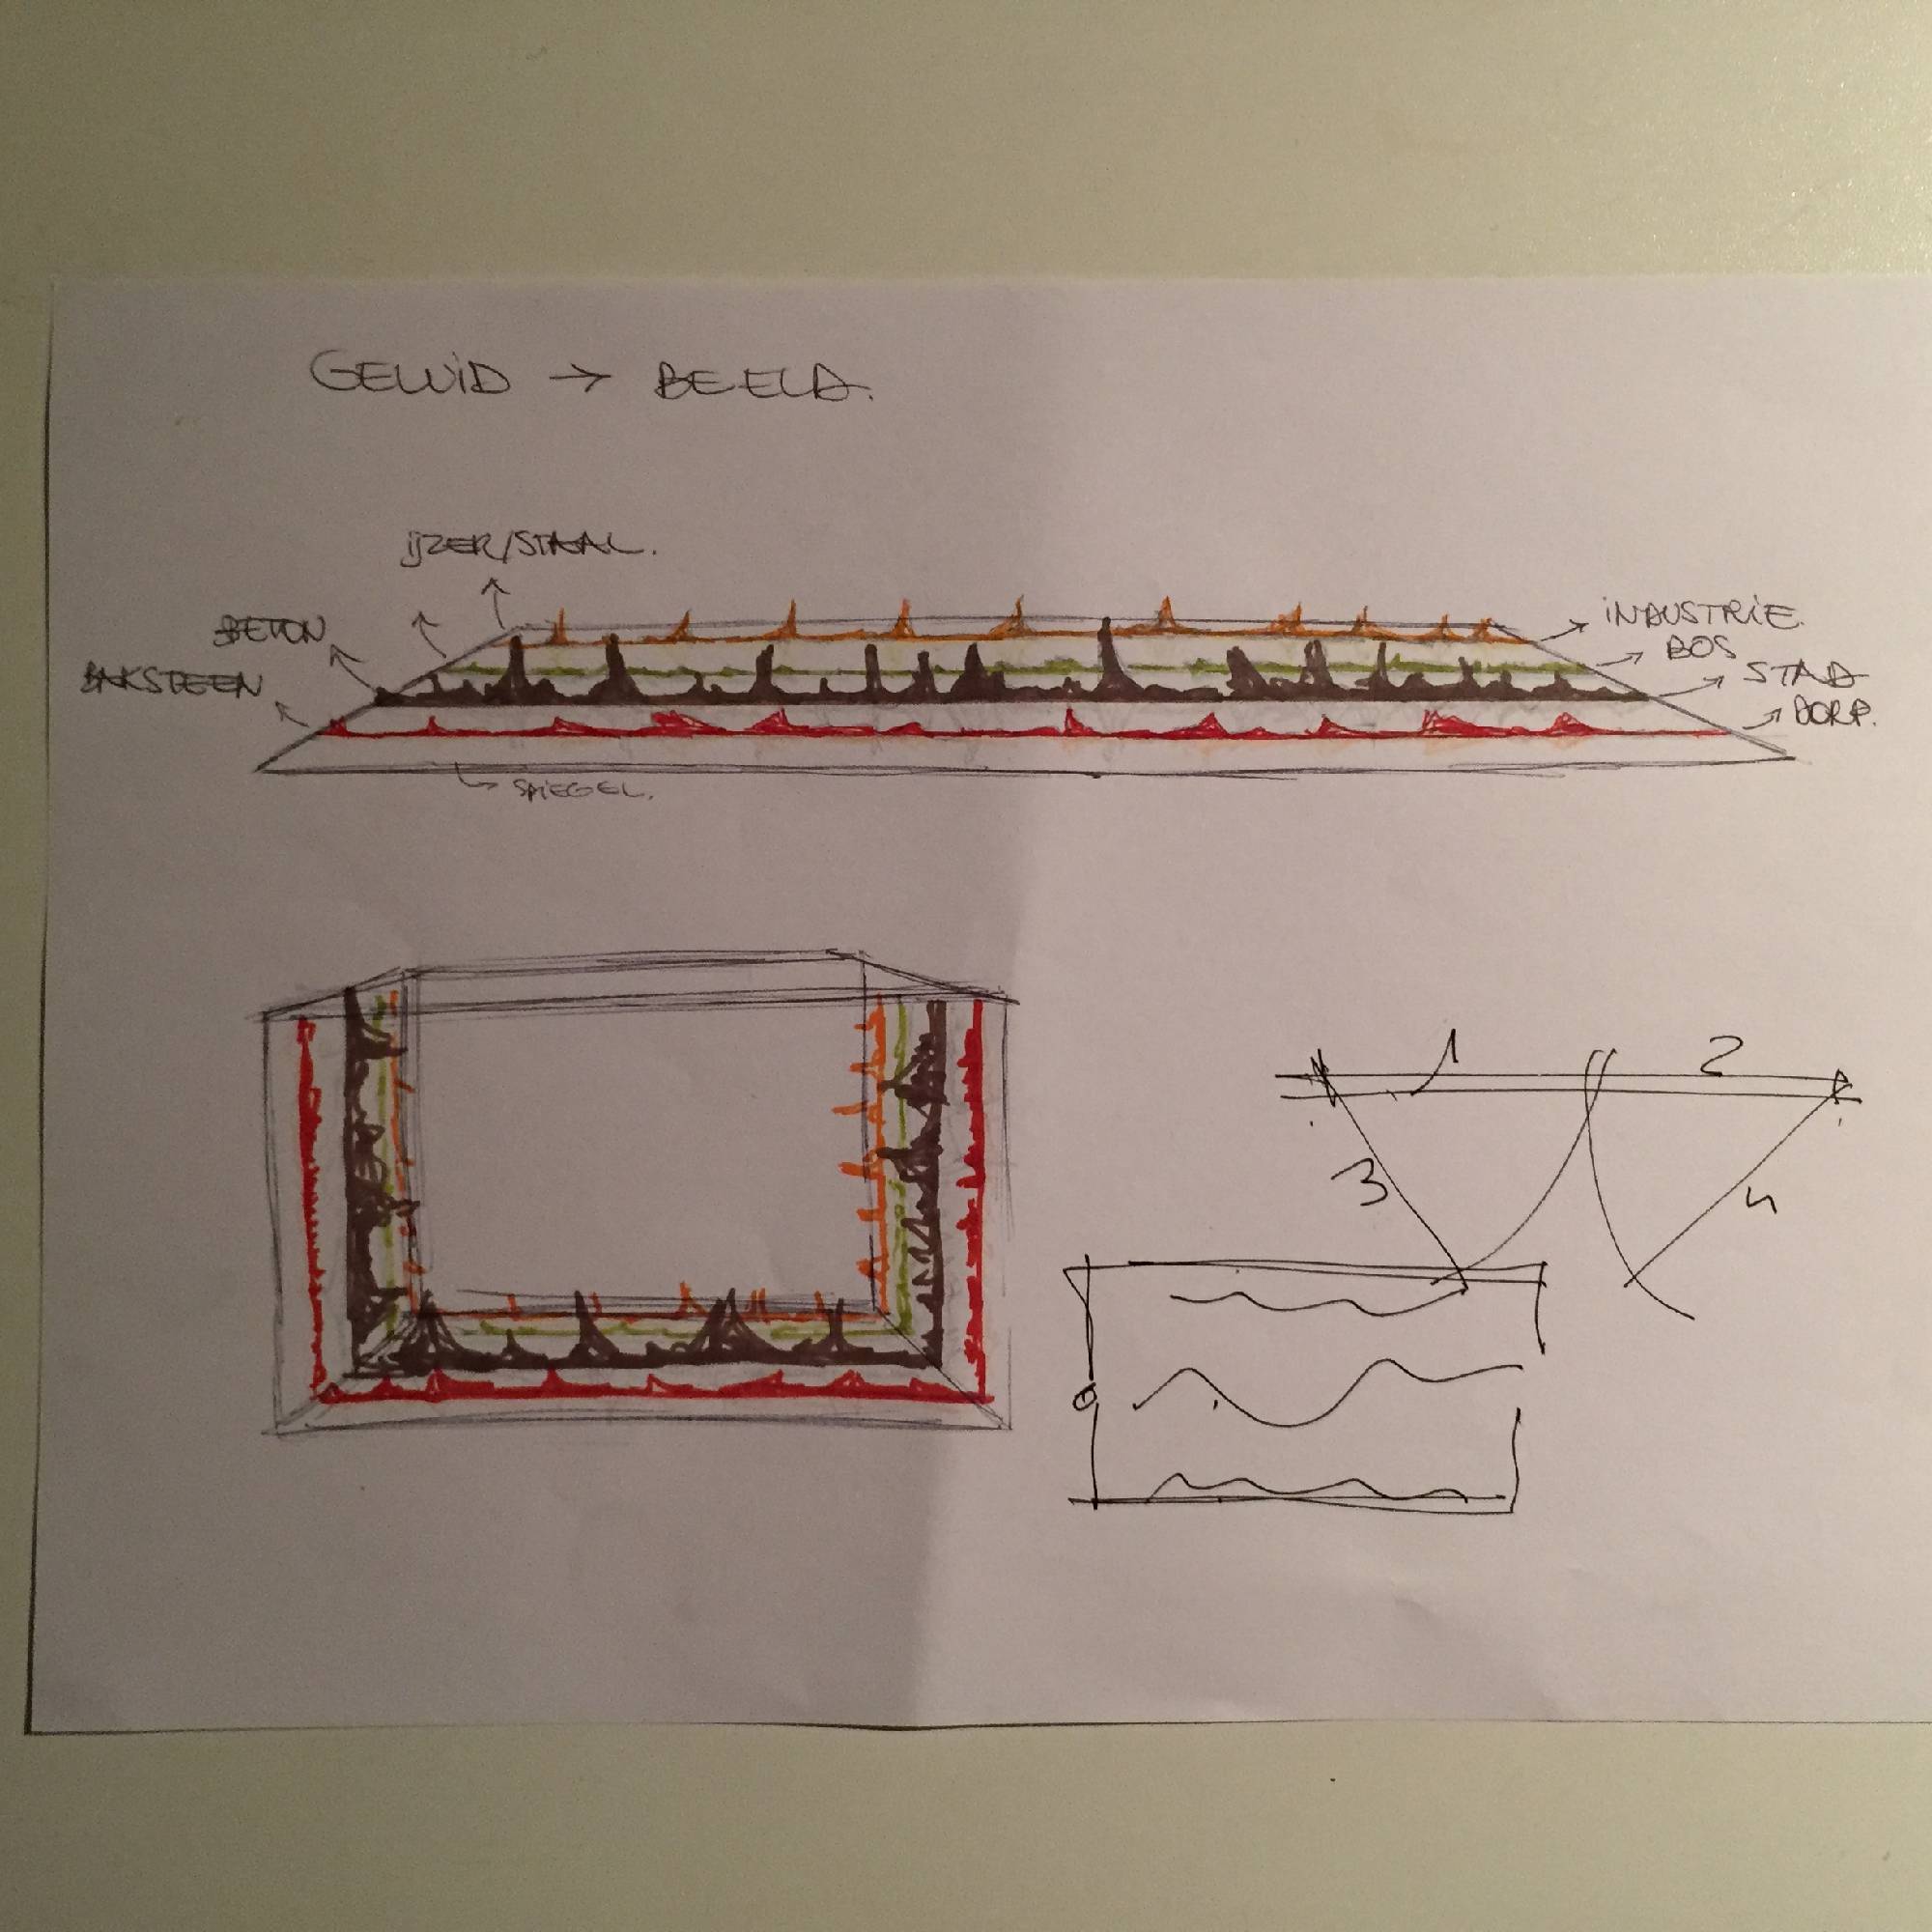 GELUID → BEELD.
IJZER/STAAL.
BETON
BAKSTEEN
INDUSTRIE.
BOS
STAD
DORP.
SPIEGEL.
1
2
3
4